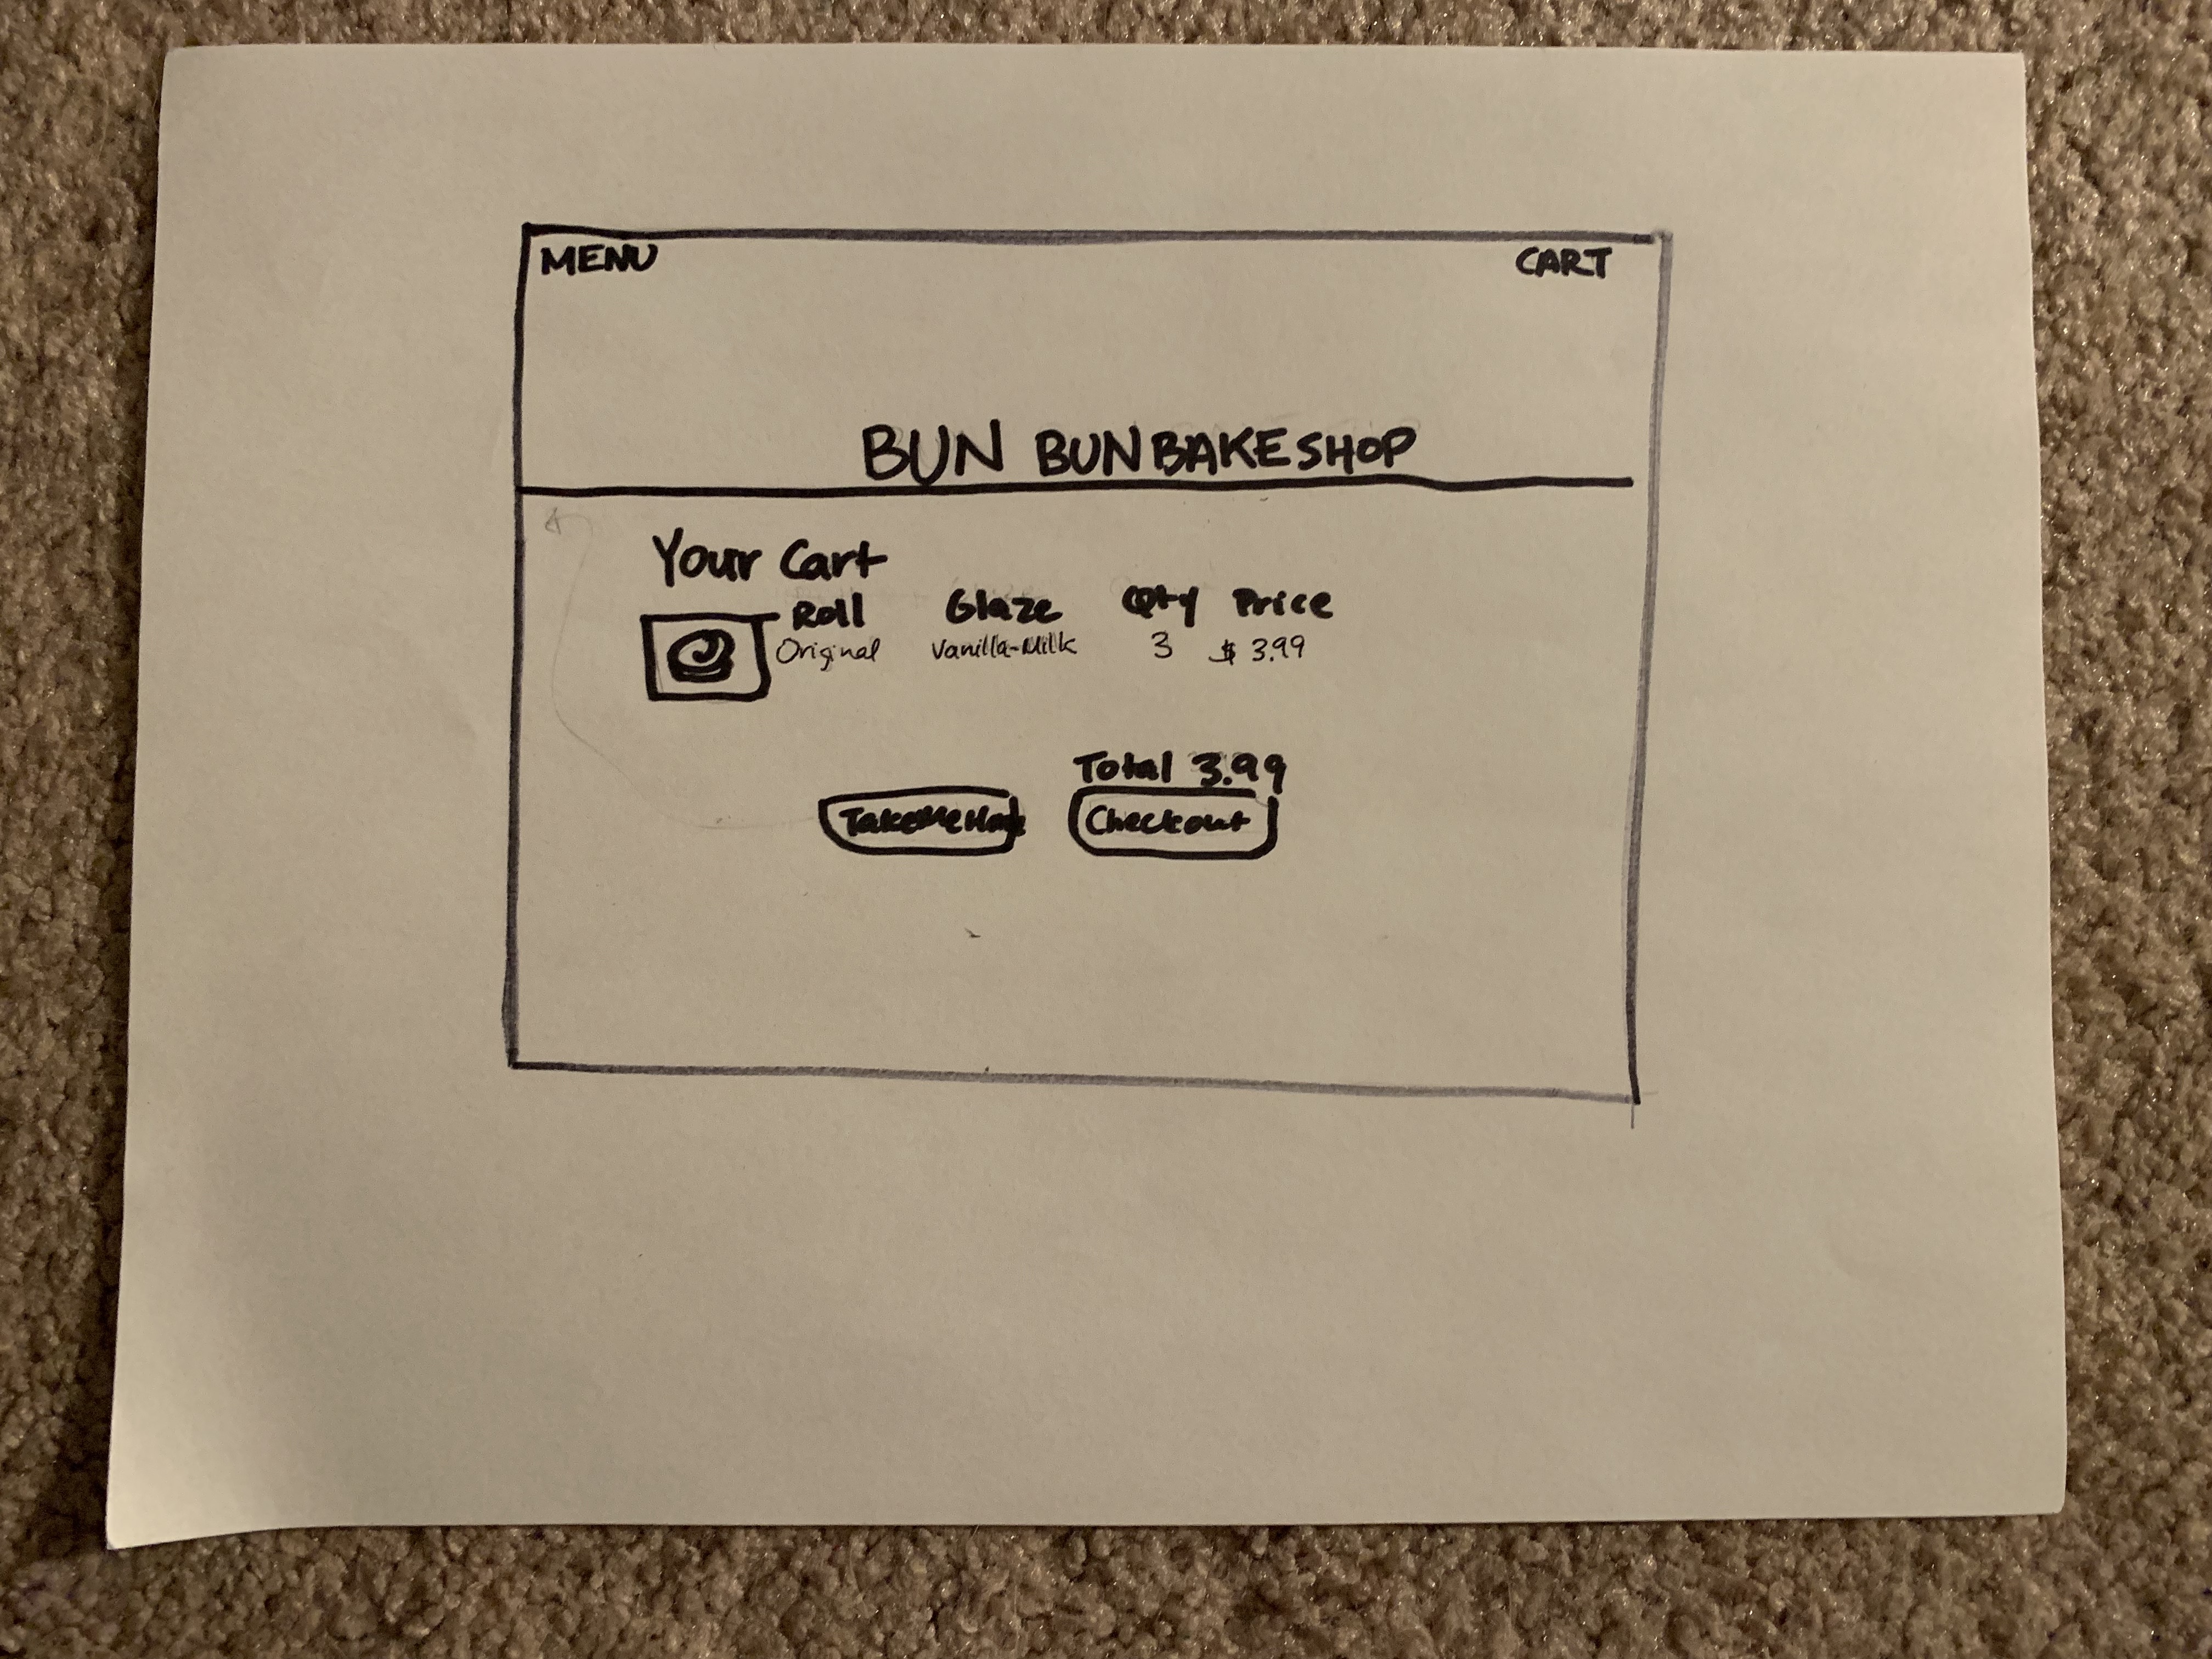 MENU CART
BUN BUN BAKESHOP
Your Cart
Roll Glaze Qty Price
Original Vanilla-Milk 3 $ 3.99
Total 3.99
TakeMe Checkout